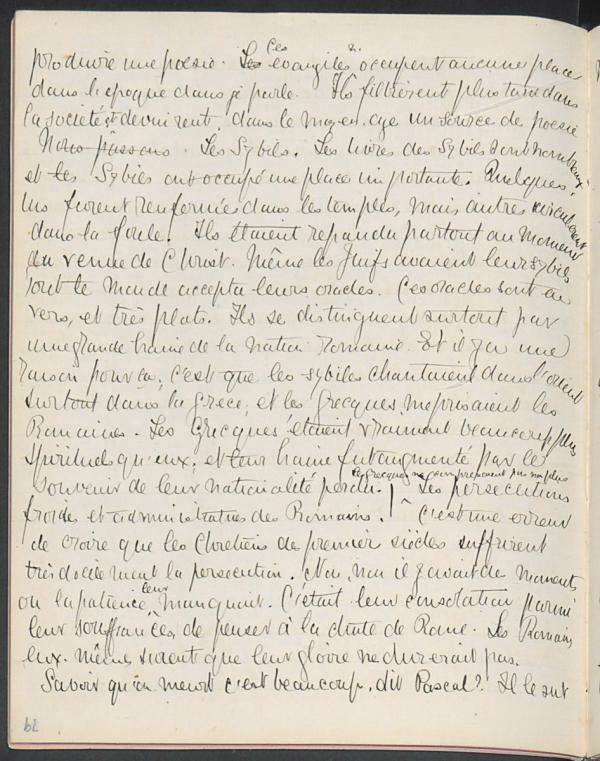 produire une poesie. Les Ces evangiles n' occupent aucune place
dans l'epoque dans je parle. Ils filtrèrent plus tard dans
la société et devinrent, dans le moyen-age un source de poesie
Nous passons. Les Sybils. Les livres des Sybils sont nombreux
et les Sybils ont occupé une place importante. Quelques-
uns furent renfermés dans les temples, mais autres circulèrent
dans la foule. Ils étaient repandu partout au moment
du venue de Christ. Même les Juifs avaient leur sybils
tout le Monde accepta leurs oracles. Ces oracles sont en
vers, et très plats. Ils se distinguent surtout par
une grande haine de la nation romaine. Et il y a une
raison pour ça, c'est que les sybiles chantaient dans l'orient
surtout dans la Grece, et les Grecques meprisaient les
Romaines. Les Grecques étaient vraiment beaucoup plus
spirituels qu'eux, et leur haine fut augmenté par le
souvenir de leur nationalité perdu. Les Grecques ne comprenaient pas non plus Les persecutions
froides et administratives des Romains. C'est une erreur
de croire que les Chretiens des premier siècles suffrirent
très docilement la persecution. Non, non il y avait des moments
ou la patience leur manquait. C'était leur consolation parmi
leur souffrances, de penser à la chute de Rome. Les Romains
eux-mêmes surent que leur gloire ne durerait pas.
Savoir qu'on meurt c'est beaucoup, dit Pascal. Il le sut
62